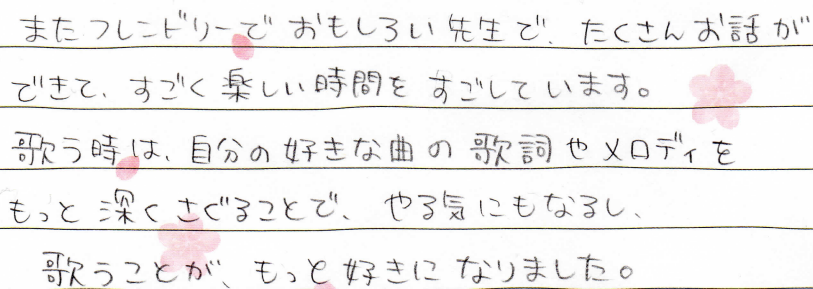 またフレンドリーでおもしろい先生で、たくさんお話が
できて、すごく楽しい時間をすごしています。
歌う時は、自分の好きな曲の歌詞やメロディを
もっと深くさぐることで、やる気にもなるし、
歌うことが、もっと好きになりました。